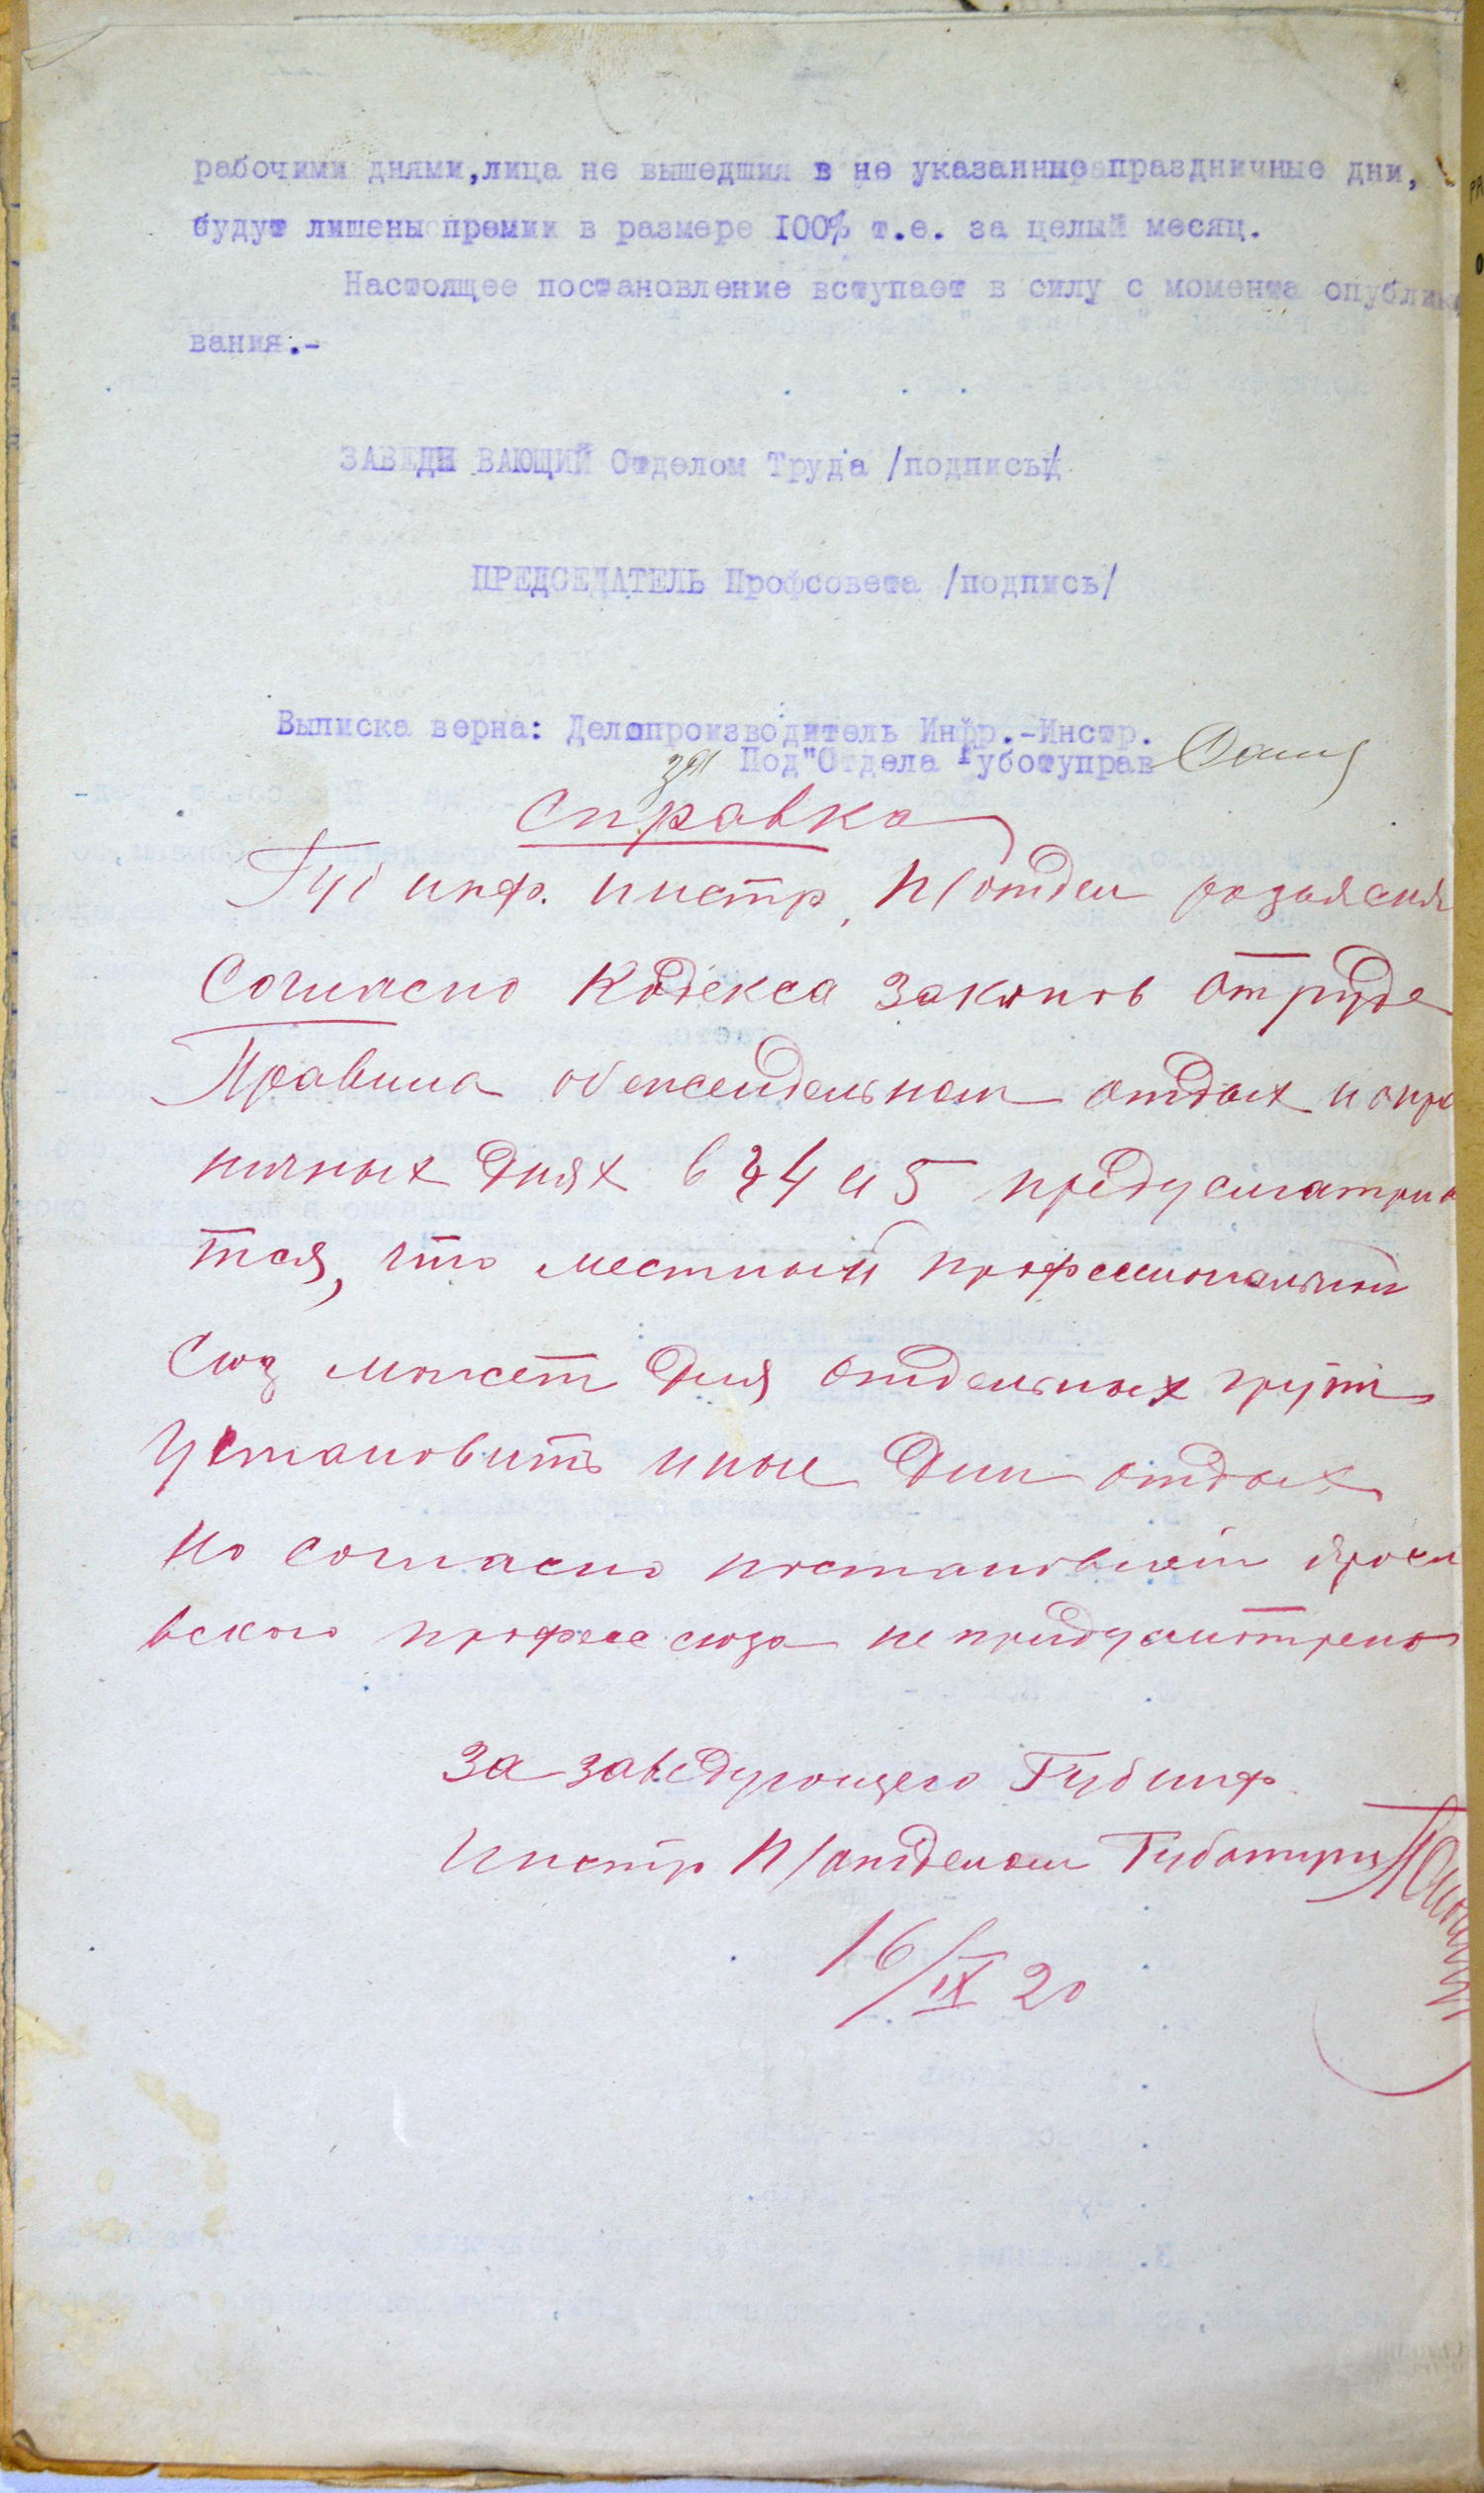 рабочими днями,лица не вышедшия в не указанные праздничные дни,
будут лишены премии в размере 100% т.е. за целый месяц.
Настоящее постановление вступает в силу с момента опублико
вания.-
ЗАВЕДИ ВАЮЩИЙ Отделом Труда /подпись/
ПРЕДСЕДАТЕЛЬ Профсовета /подпись/
Выписка верна: Делопроизводитель Инфр.-Инстр.
за Под"Отдела Губотуправ
Справка
Губ инф. инстр. П/отдел разъясня
Согласно Кодекса Законов о труде
Правила об еженедельном отдых и о пра
ничных днях в § 4 и 5 предусматрив
тся, что местный профессиональный
Союз может для отдельных групп
Установить иные дни отдых
Но согласно постановлени Яросл
вского професс союза не предусмотрено
За заведующего Губ инф
Инстр П/отделом Губотупр
16/IX 20